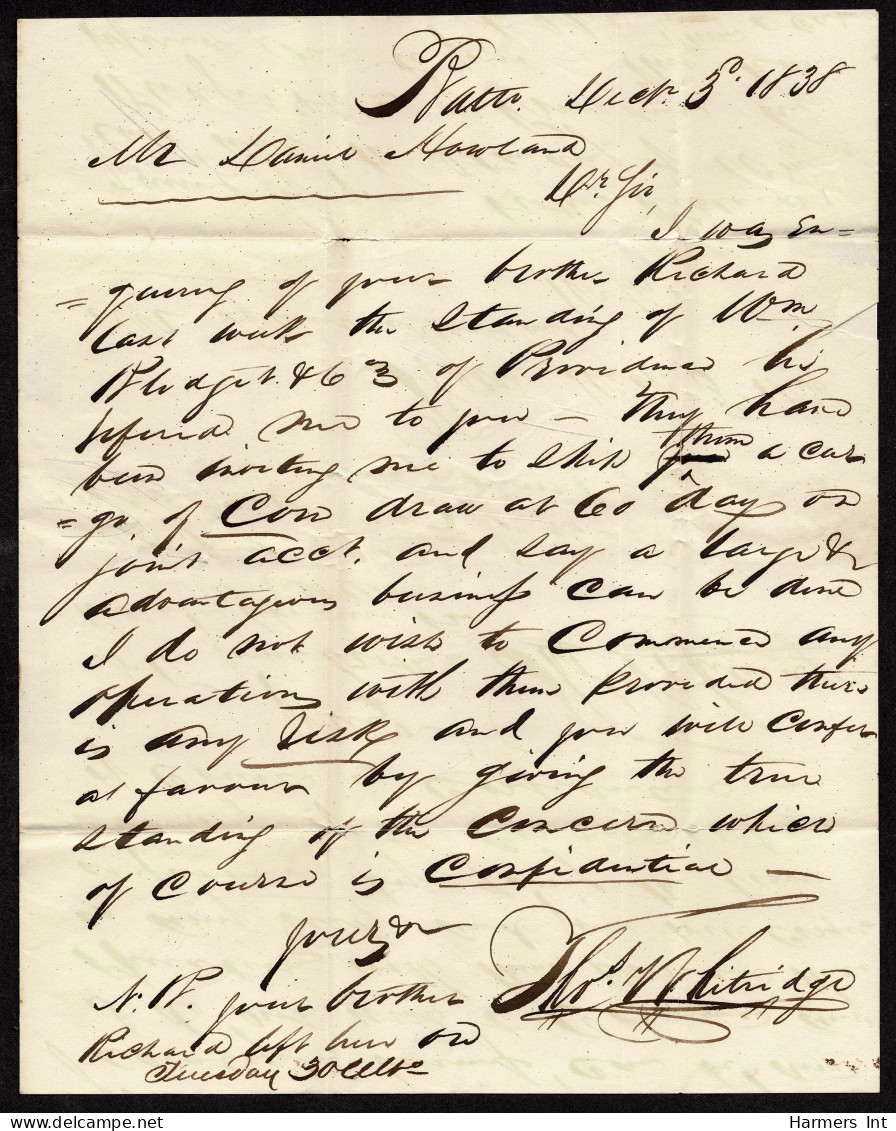 Balto. Decr. 3d. 1838
Mr Daniel Howland
Dr Sir,
I was en=
=quiring of your brother Richard
last week the standing of Wm
Blodget & Co of Providence he
refered me to you – they have
been inviting me to ship them a car
=go of Corn draw at 60 days on
joint acct. and say a large &
advantageous business can be done
I do not wish to Commence any
operations with them provided there
is any risk and you will confer
a favour by giving the true
standing of the Concern which
of Course is Confidential —
yours &
Thos. Whitridge
N.B. your brother
Richard left here on
Tuesday 30 Ulto
Harmers Int
www.delcampe.net